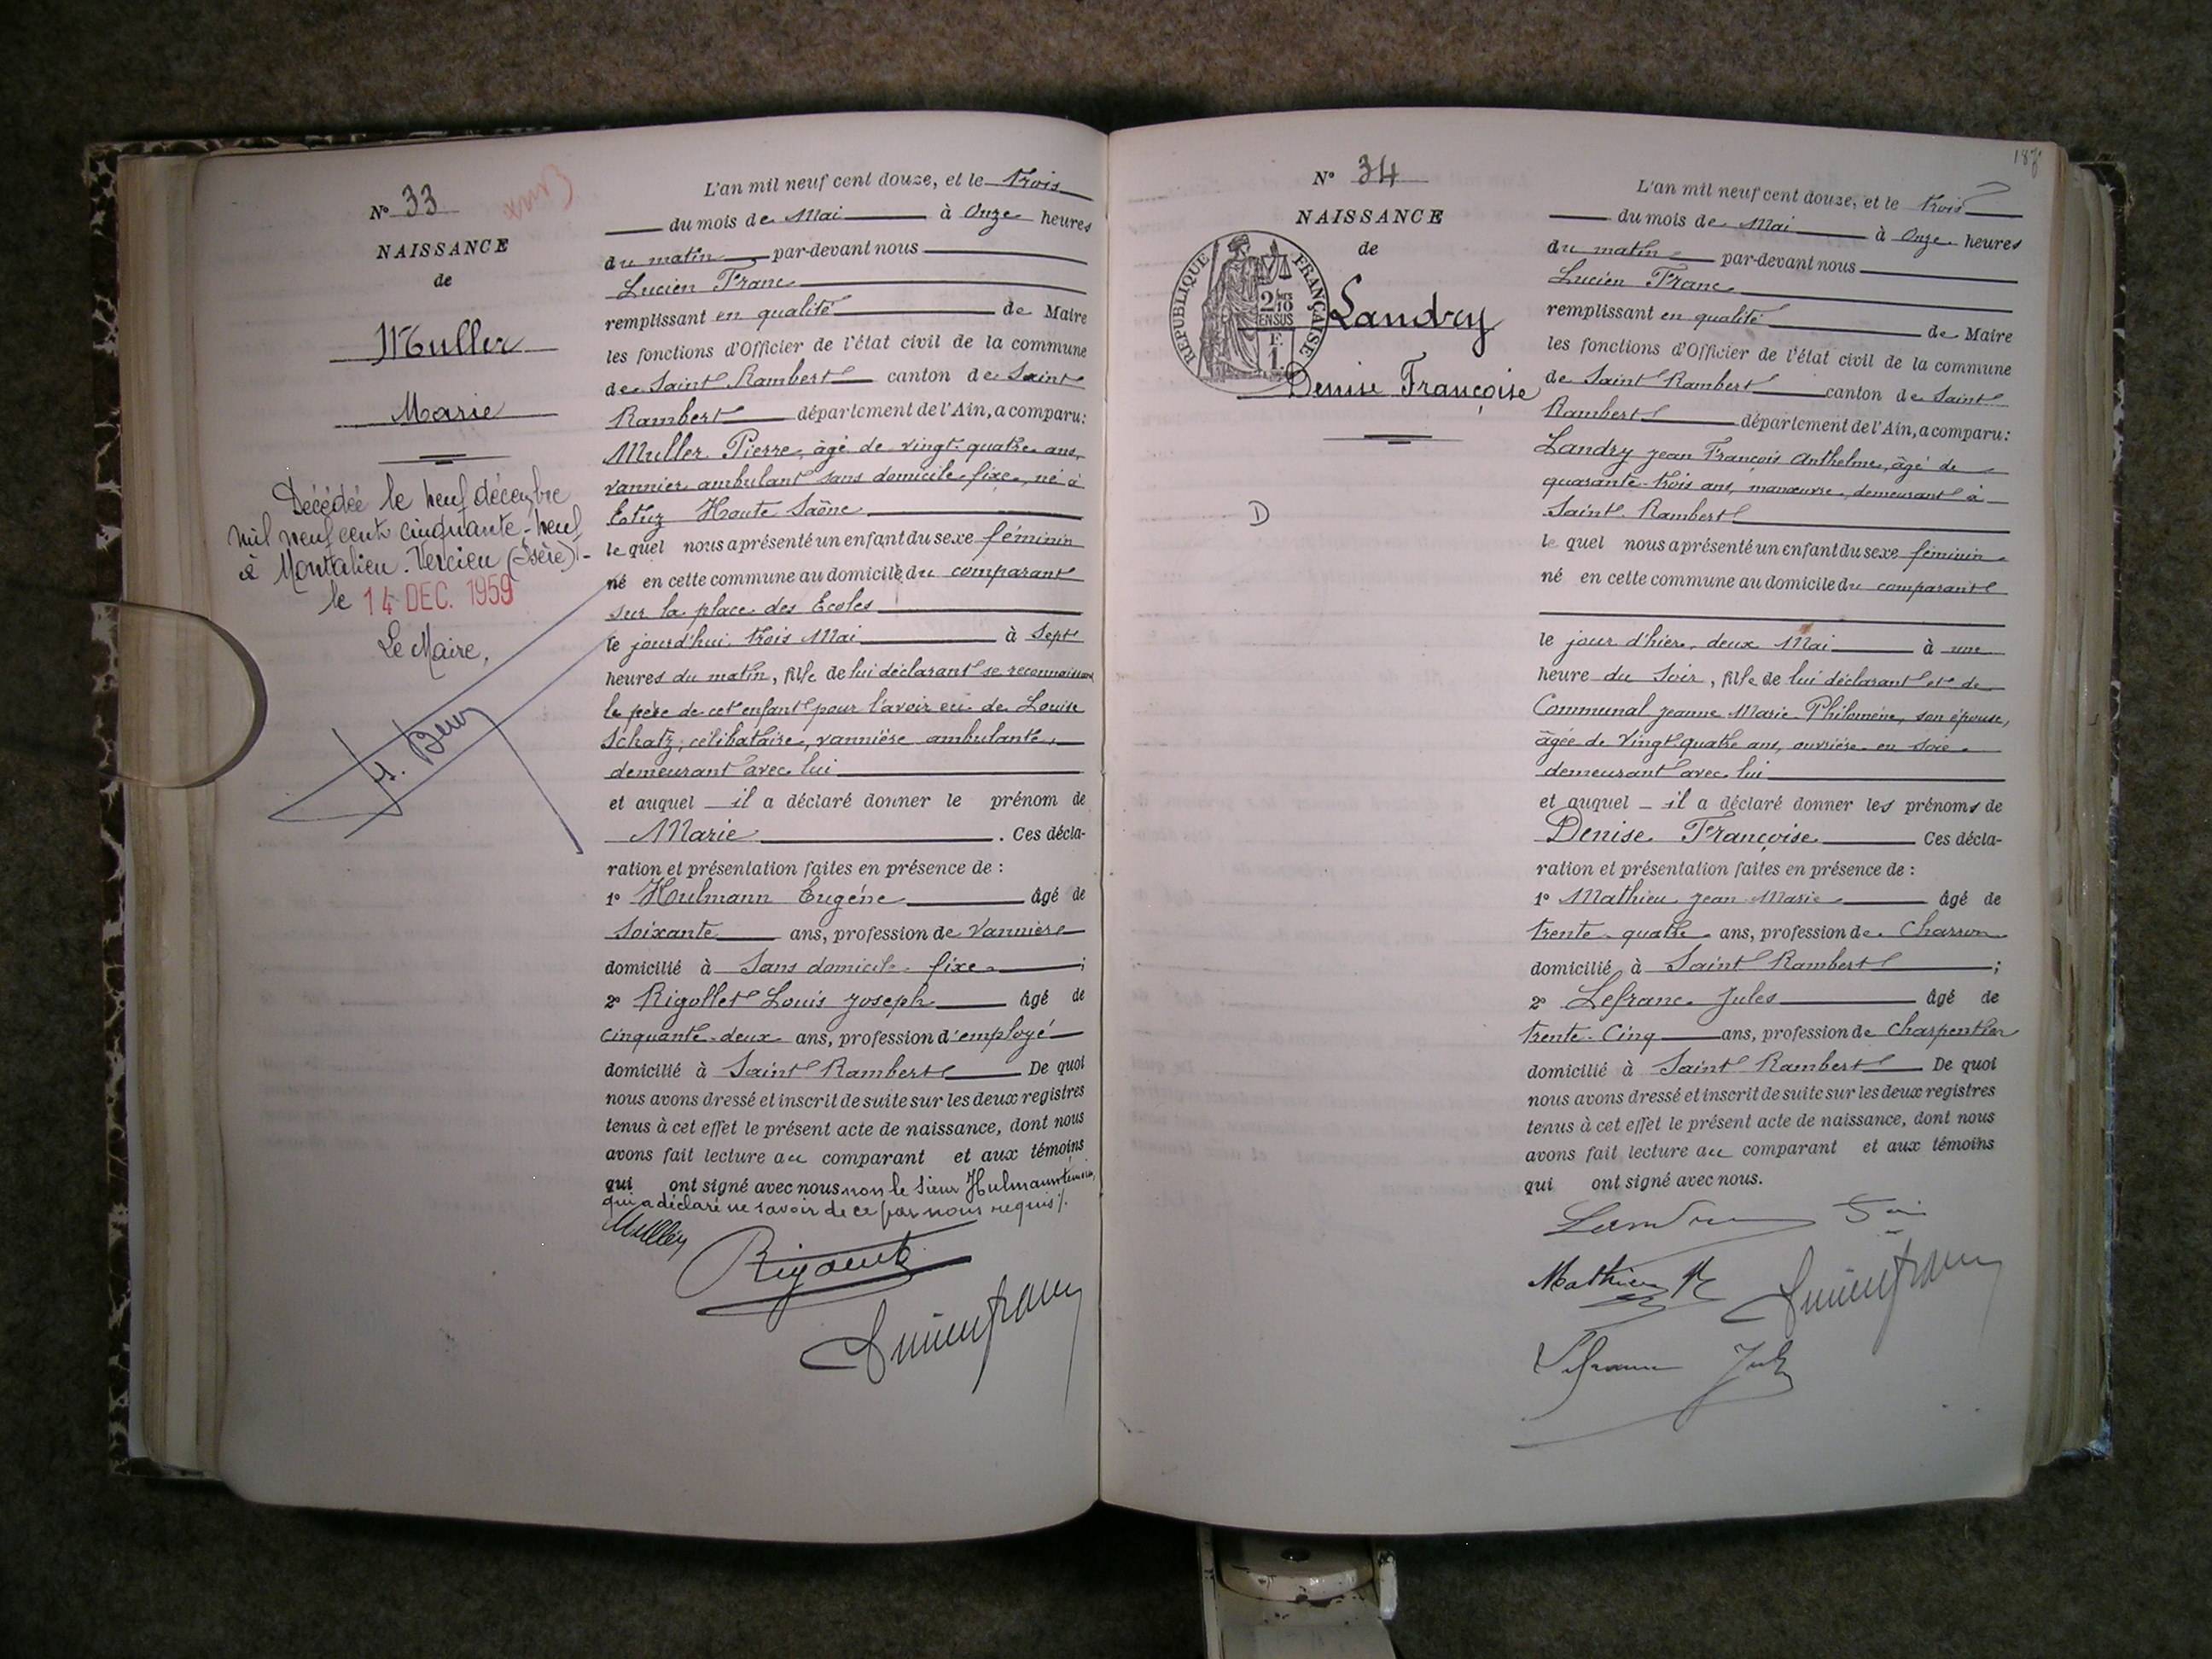 N° 33
NAISSANCE
de
Muller
Marie
Décédée le neuf décembre
mil neuf cent cinquante-neuf
à Montalieu-Vercieu (Isère).-
le 14 DEC. 1959
Le Maire,
L'an mil neuf cent douze, et le trois
du mois de Mai à Onze heures
du matin par-devant nous
Lucien Franc
remplissant en qualité de Maire
les fonctions d'Officier de l'état civil de la commune
de Saint Rambert canton de Saint
Rambert département de l'Ain, a comparu:
Muller Pierre, âgé de vingt-quatre ans,
vannier ambulant sans domicile fixe, né à
Etuz Haute Saône
le quel nous a présenté un enfant du sexe féminin
né en cette commune au domicile du comparant
sur la place des Ecoles
le jourd'hui trois Mai à Sept
heures du matin, fille de lui déclarant se reconnaissant
le père de cet enfant pour l'avoir eu de Louise
Schatz, célibataire, vannière ambulante,
demeurant avec lui
et auquel il a déclaré donner le prénom de
Marie. Ces décla-
ration et présentation faites en présence de :
1° Hulmann Eugène Âgé de
Soixante ans, profession de Vannier
domicilié à Sans domicile fixe ;
2° Rigollet Louis Joseph Âgé de
Cinquante-deux ans, profession d'employé
domicilié à Saint Rambert De quoi
nous avons dressé et inscrit de suite sur les deux registres
tenus à cet effet le présent acte de naissance, dont nous
avons fait lecture au comparant et aux témoins
qui ont signé avec nous non le sieur Hulmann témoin,
qui a déclaré ne savoir de ce par nous requis./.
Muller
N° 34
187
NAISSANCE
de
RÉPUBLIQUE FRANÇAISE
2/10
EN SUS
F.
1.
Landry
Denise Françoise
D
L'an mil neuf cent douze, et le trois
du mois de Mai à Onze heures
du matin par-devant nous
Lucien Franc
remplissant en qualité de Maire
les fonctions d'Officier de l'état civil de la commune
de Saint Rambert canton de Saint
Rambert département de l'Ain, a comparu:
Landry Jean François Anthelme, âgé de
quarante-trois ans, manœuvre, demeurant à
Saint Rambert
le quel nous a présenté un enfant du sexe féminin
né en cette commune au domicile du comparant
le jour d'hier, deux Mai à une
heure du Soir, fille de lui déclarant et de
Communal Jeanne Marie Philomène, son épouse,
âgée de Vingt-quatre ans, ouvrière en soie
demeurant avec lui
et auquel il a déclaré donner les prénoms de
Denise Françoise Ces décla-
ration et présentation faites en présence de :
1° Mathieu Jean Marie Âgé de
trente-quatre ans, profession de Charron
domicilié à Saint Rambert ;
2° Lefranc Jules Âgé de
trente-Cinq ans, profession de Charpentier
domicilié à Saint Rambert De quoi
nous avons dressé et inscrit de suite sur les deux registres
tenus à cet effet le présent acte de naissance, dont nous
avons fait lecture au comparant et aux témoins
qui ont signé avec nous.
Mathieu
Lefranc Jules